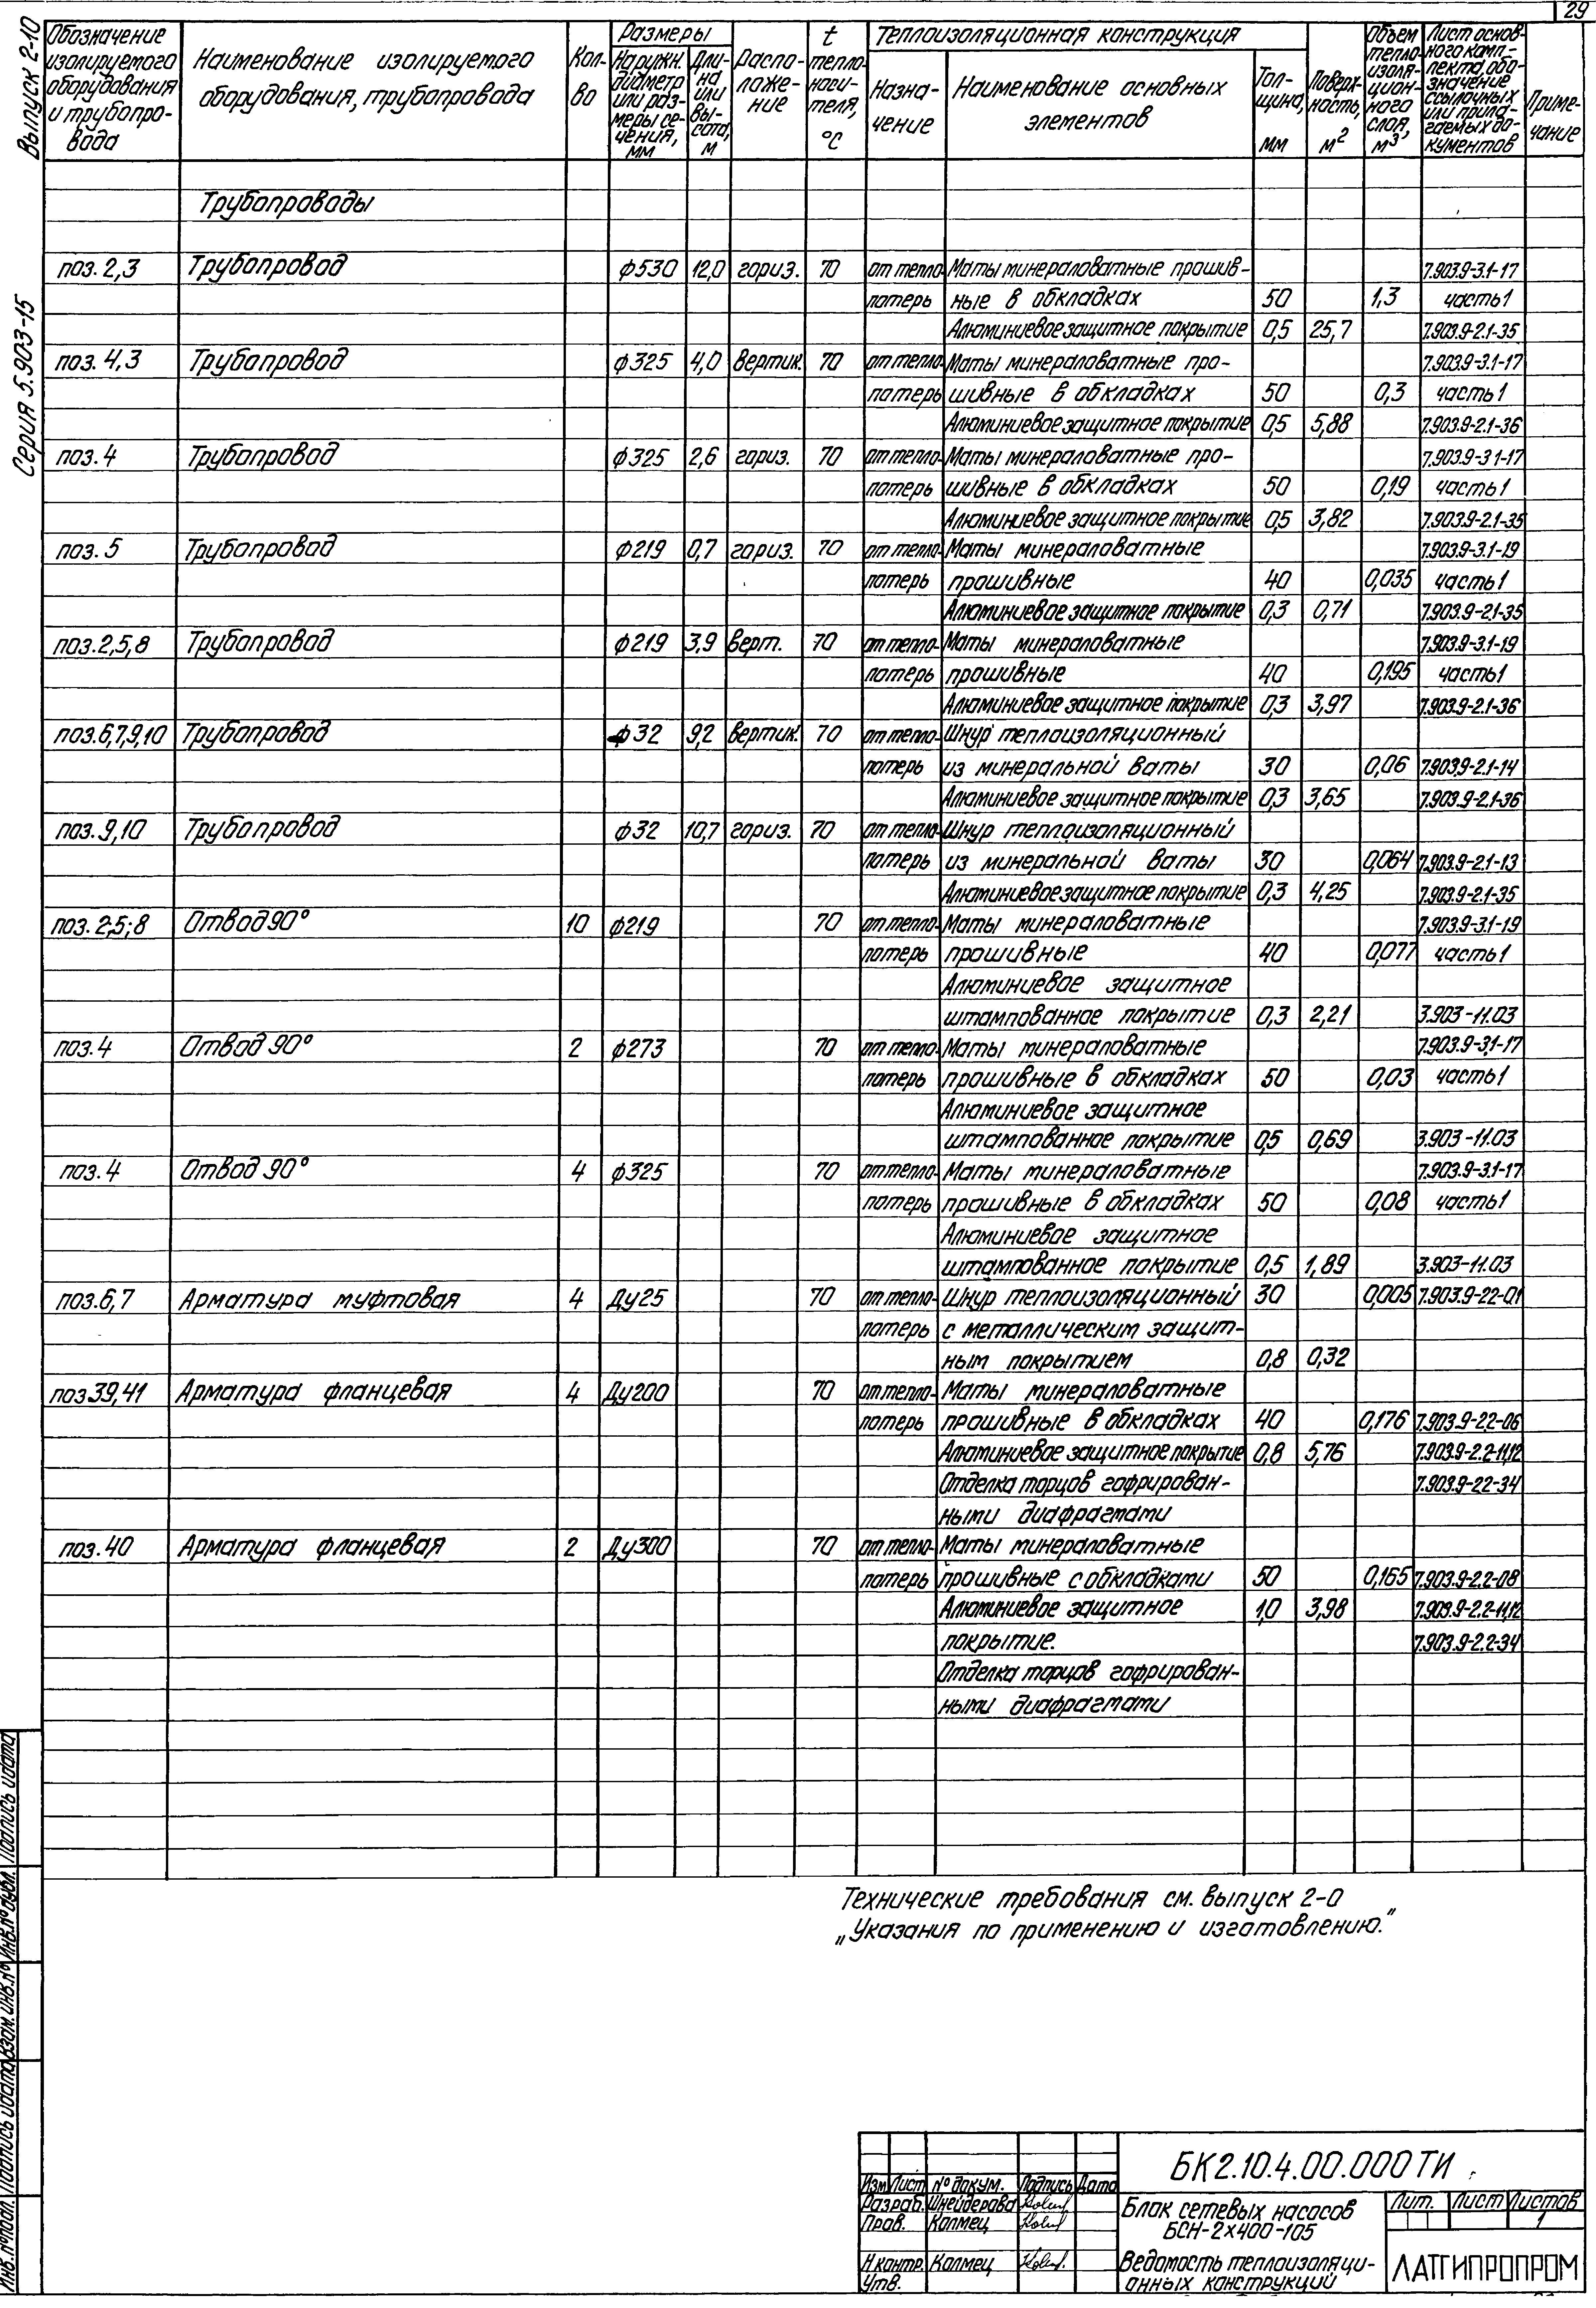 29
Выпуск 2-10
Серия 5.903-15
Обозначение изолируемого оборудования и трубопровода
Наименование изолируемого оборудования, трубопровода
Кол-во
Размеры
Наружн. диаметр или размеры сечения, мм
Длина или высота, м
Расположение
t теплоносителя, °С
Теплоизоляционная конструкция
Назначение
Наименование основных элементов
Толщина, мм
Поверхность, м2
Объем теплоизоляционного слоя, м3
Лист основного комплекта, обозначение ссылочных или прилагаемых документов
Примечание
Трубопроводы
поз. 2,3 Трубопровод ф530 12,0 гориз. 70 от тепло- Маты минераловатные прошив- 7.903.9-3.1-17
потерь ные в обкладках 50 1,3 часть 1
Алюминиевое защитное покрытие 0,5 25,7 7.903.9-2.1-35
поз. 4,3 Трубопровод ф325 4,0 вертик. 70 от тепло- Маты минераловатные про- 7.903.9-3.1-17
потерь шивные в обкладках 50 0,3 часть 1
Алюминиевое защитное покрытие 0,5 5,88 7.903.9-2.1-36
поз. 4 Трубопровод ф325 2,6 гориз. 70 от тепло- Маты минераловатные про- 7.903.9-3 1-17
потерь шивные в обкладках 50 0,19 часть 1
Алюминиевое защитное покрытие 0,5 3,82 7.903.9-2.1-35
поз. 5 Трубопровод ф219 0,7 гориз. 70 от тепло- Маты минераловатные 7.903.9-3.1-19
потерь прошивные 40 0,035 часть 1
Алюминиевое защитное покрытие 0,3 0,71 7.903.9-2.1-35
поз. 2,5,8 Трубопровод ф219 3,9 верт. 70 от тепло- Маты минераловатные 7.903.9-3.1-19
потерь прошивные 40 0,195 часть 1
Алюминиевое защитное покрытие 0,3 3,97 7.903.9-2.1-36
поз. 6,7,9,10 Трубопровод ф32 9,2 вертик. 70 от тепло- Шнур теплоизоляционный
потерь из минеральной ваты 30 0,06 7.903.9-2.1-14
Алюминиевое защитное покрытие 0,3 3,65 7.903.9-2.1-36
поз. 9,10 Трубопровод ф32 10,7 гориз. 70 от тепло- Шнур теплоизоляционный
потерь из минеральной ваты 30 0,064 7.903.9-2.1-13
Алюминиевое защитное покрытие 0,3 4,25 7.903.9-2.1-35
поз. 2,5;8 Отвод 90° 10 ф219 70 от тепло- Маты минераловатные 7.903.9-3.1-19
потерь прошивные 40 0,077 часть 1
Алюминиевое защитное
штампованное покрытие 0,3 2,21 3.903-11.03
поз. 4 Отвод 90° 2 ф273 70 от тепло- Маты минераловатные 7.903.9-3.1-17
потерь прошивные в обкладках 50 0,03 часть 1
Алюминиевое защитное
штампованное покрытие 0,5 0,69 3.903-11.03
поз. 4 Отвод 90° 4 ф325 70 от тепло- Маты минераловатные 7.903.9-3.1-17
потерь прошивные в обкладках 50 0,08 часть 1
Алюминиевое защитное
штампованное покрытие 0,5 1,89 3.903-11.03
поз. 6,7 Арматура муфтовая 4 Ду25 70 от тепло- Шнур теплоизоляционный 30 0,005 7.903.9-2.2-01
потерь с металлическим защит-
ным покрытием 0,8 0,32
поз 39,41 Арматура фланцевая 4 Ду200 70 от тепло- Маты минераловатные
потерь прошивные в обкладках 40 0,176 7.903.9-2.2-06
Алюминиевое защитное покрытие 0,8 5,76 7.903.9-2.2-11,12
Отделка торцов гофрирован- 7.903.9-2.2-34
ными диафрагмами
поз. 40 Арматура фланцевая 2 Ду300 70 от тепло- Маты минераловатные
потерь прошивные с обкладками 50 0,165 7.903.9-2.2-08
Алюминиевое защитное 1,0 3,98 7.903.9-2.2-11,12
покрытие. 7.903.9-2.2-34
Отделка торцов гофрирован-
ными диафрагмами
Технические требования см. выпуск 2-0
„Указания по применению и изготовлению."
Инв.№подл. Подпись и дата Взам. инв.№ Инв.№ дубл. Подпись и дата
БК2.10.4.00.000 ТИ
Изм Лист № докум. Подпись Дата
Разраб. Шнейдерова
Пров. Колмец
Н.контр. Колмец
Утв.
Блок сетевых насосов
БСН-2х400-105
Ведомость теплоизоляци-
онных конструкций
Лит. Лист Листов
1
ЛАТГИПРОПРОМ